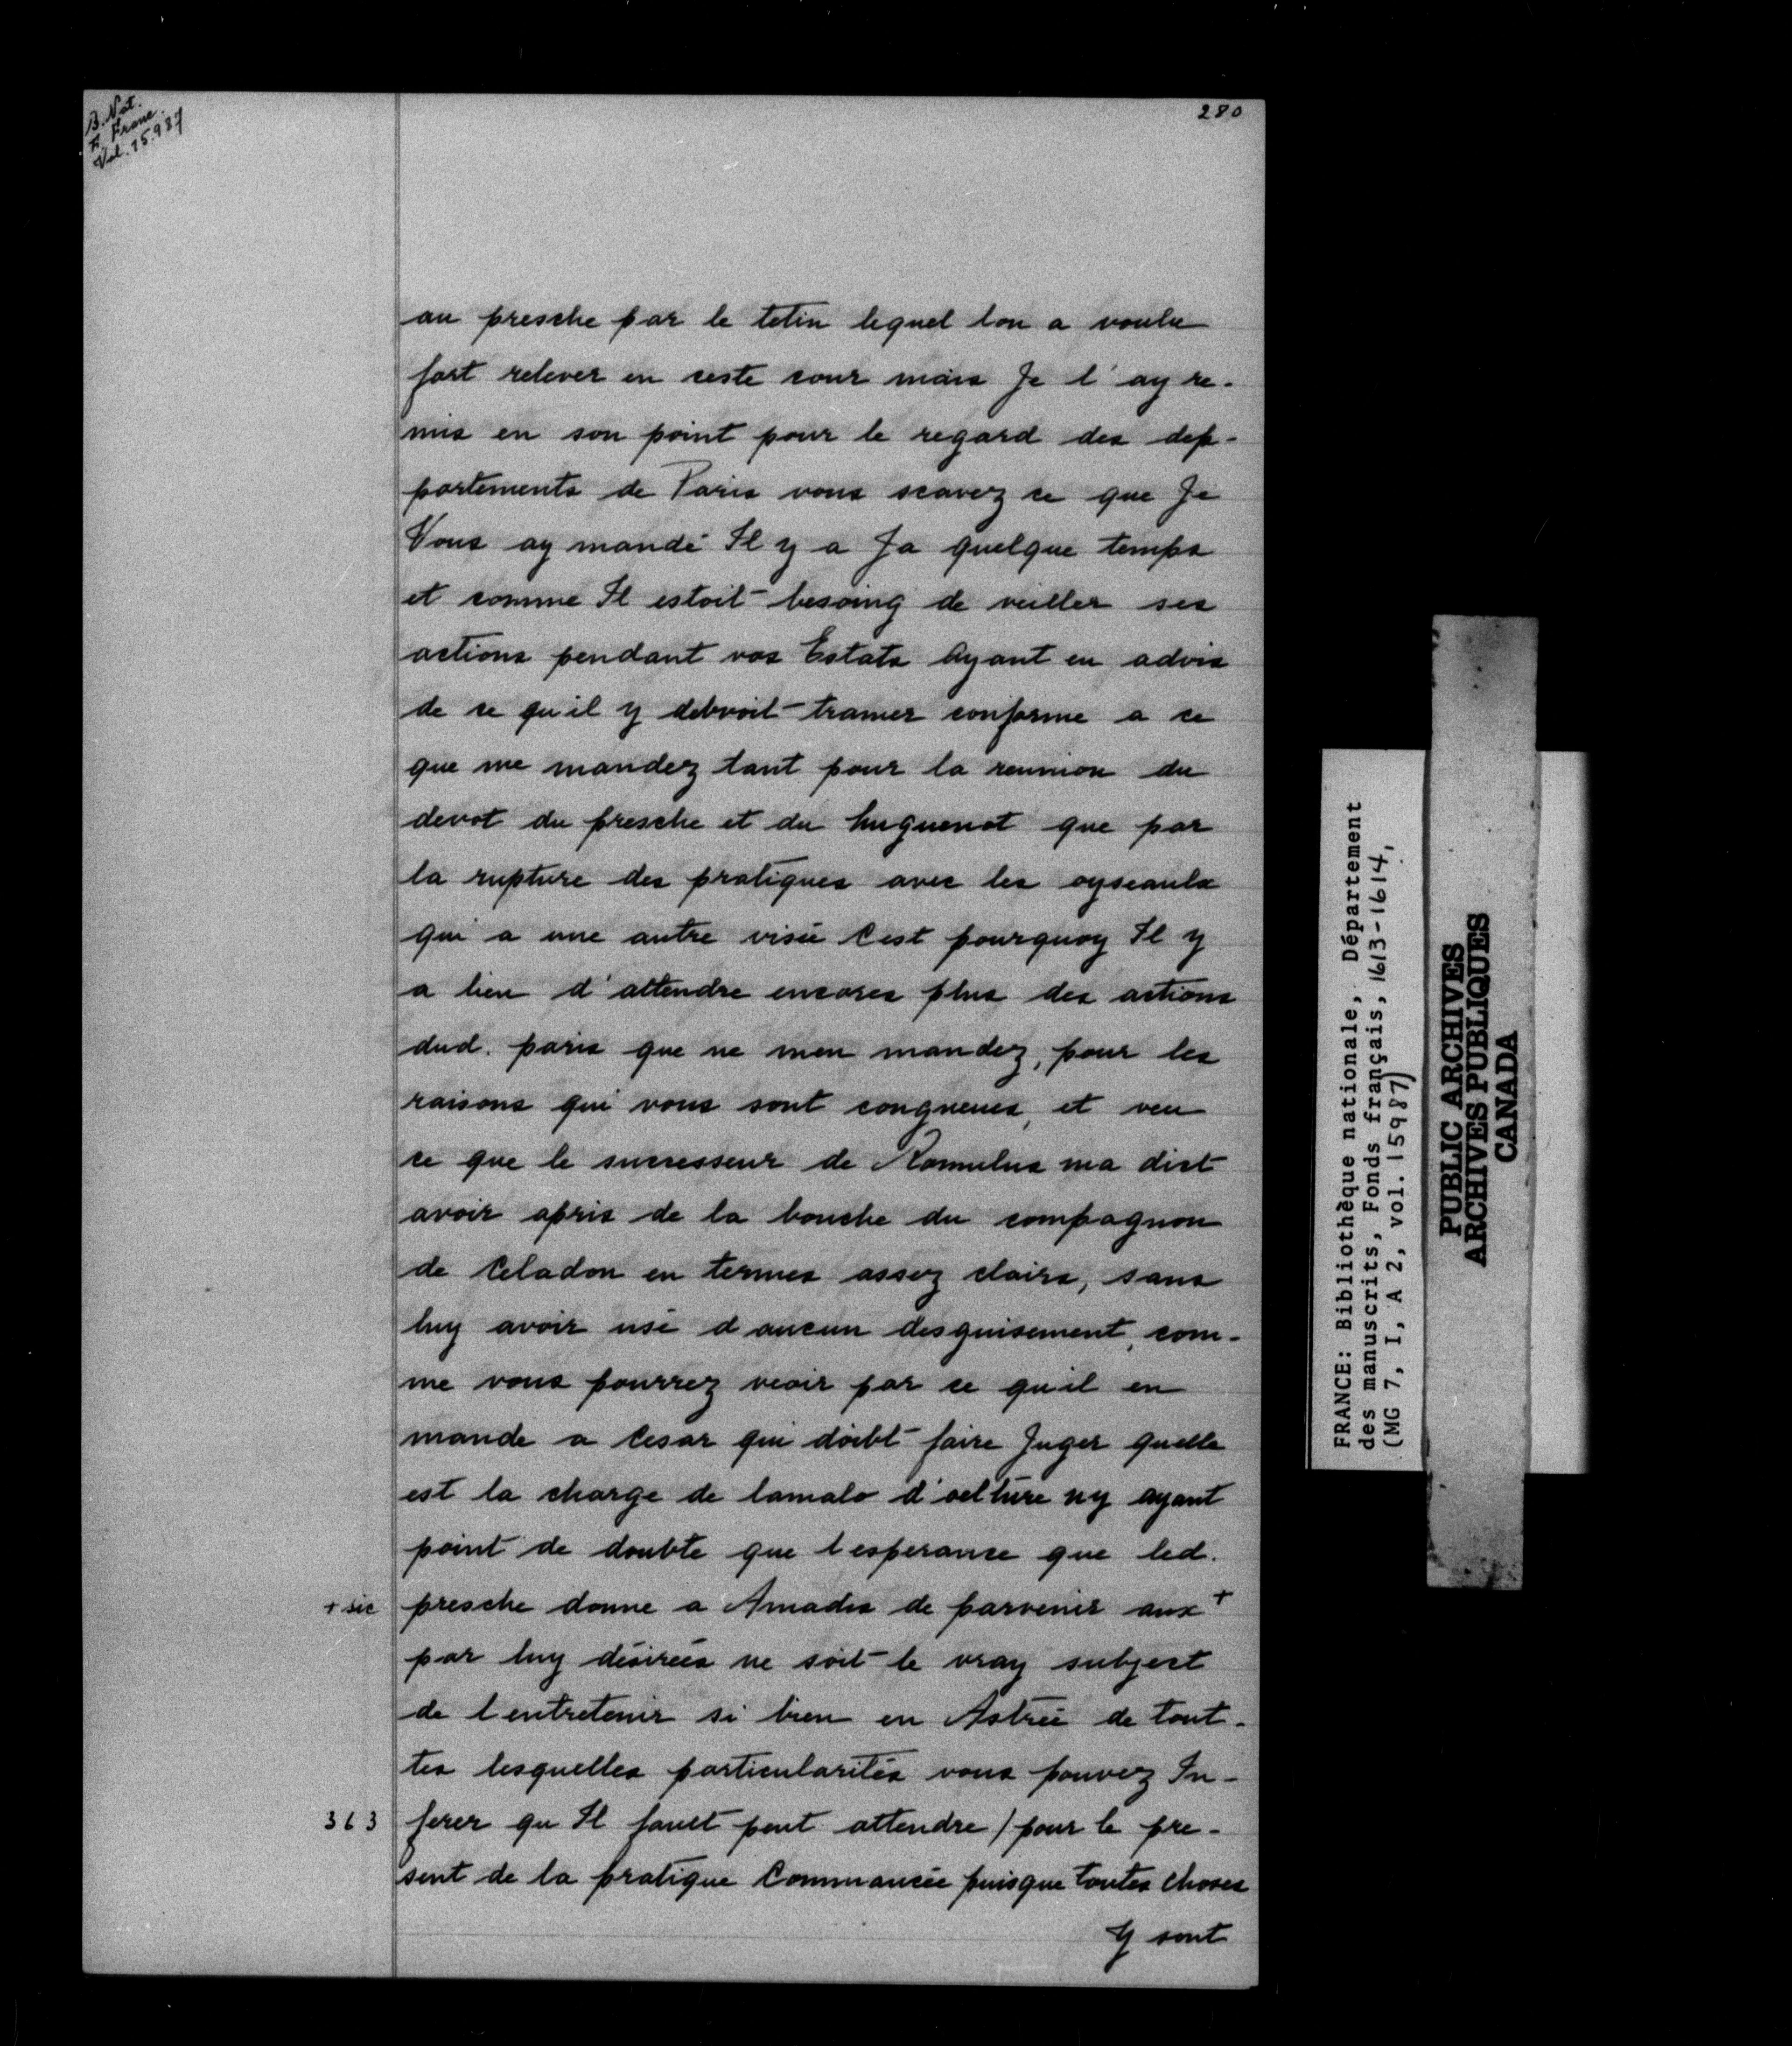 B. Nat.
F. Franc.
Vol. 15.987
280
au presche par le tetin lequel lon a voulu
fort relever en ceste cour mais Je l'ay re-
mis en son point pour le regard des dep-
portements de Paris vous scavez ce que Je
Vous ay mandé Il y a Ja quelque temps
et comme Il estoit besoing de veiller ses
actions pendant vos Estats Ayant eu advis
de ce qu'il y debvoit tramer conforme a ce
que me mandez tant pour la reunion du
devot du presche et du huguenot que par
la rupture des pratiques avec les oyseaulx
qui a une autre visée C'est pourquoy Il y
a lieu d'attendre encores plus des actions
dud. paris que ne men mandez, pour les
raisons qui vous sont congneues, et veu
ce que le successeur de Romulus ma dict
avoir apris de la bouche du compagnon
de Celadon en termes assez clairs, sans
luy avoir usé d aucun desguisement, com-
me vous pourrez veoir par ce qu'il en
mande a Cesar qui doibt faire Juger quelle
est la charge de lamalo d' ny ayant
point de doubte que l esperance que led.
+ sic presche donne a Amadis de parvenir aux +
par luy désirées ne soit le vray subject
de l entretenir si bien en Astrée de tout-
tes lesquelles particularités vous pouvez In-
363 ferer qu Il fault peut attendre / pour le pre-
sent de la pratique Commancée puisque toutes choses
Y sont
FRANCE: Bibliothèque nationale, Département
des manuscrits, Fonds français, 1613-1614,
(MG 7, I, A 2, vol. 15987)
PUBLIC ARCHIVES
ARCHIVES PUBLIQUES
CANADA